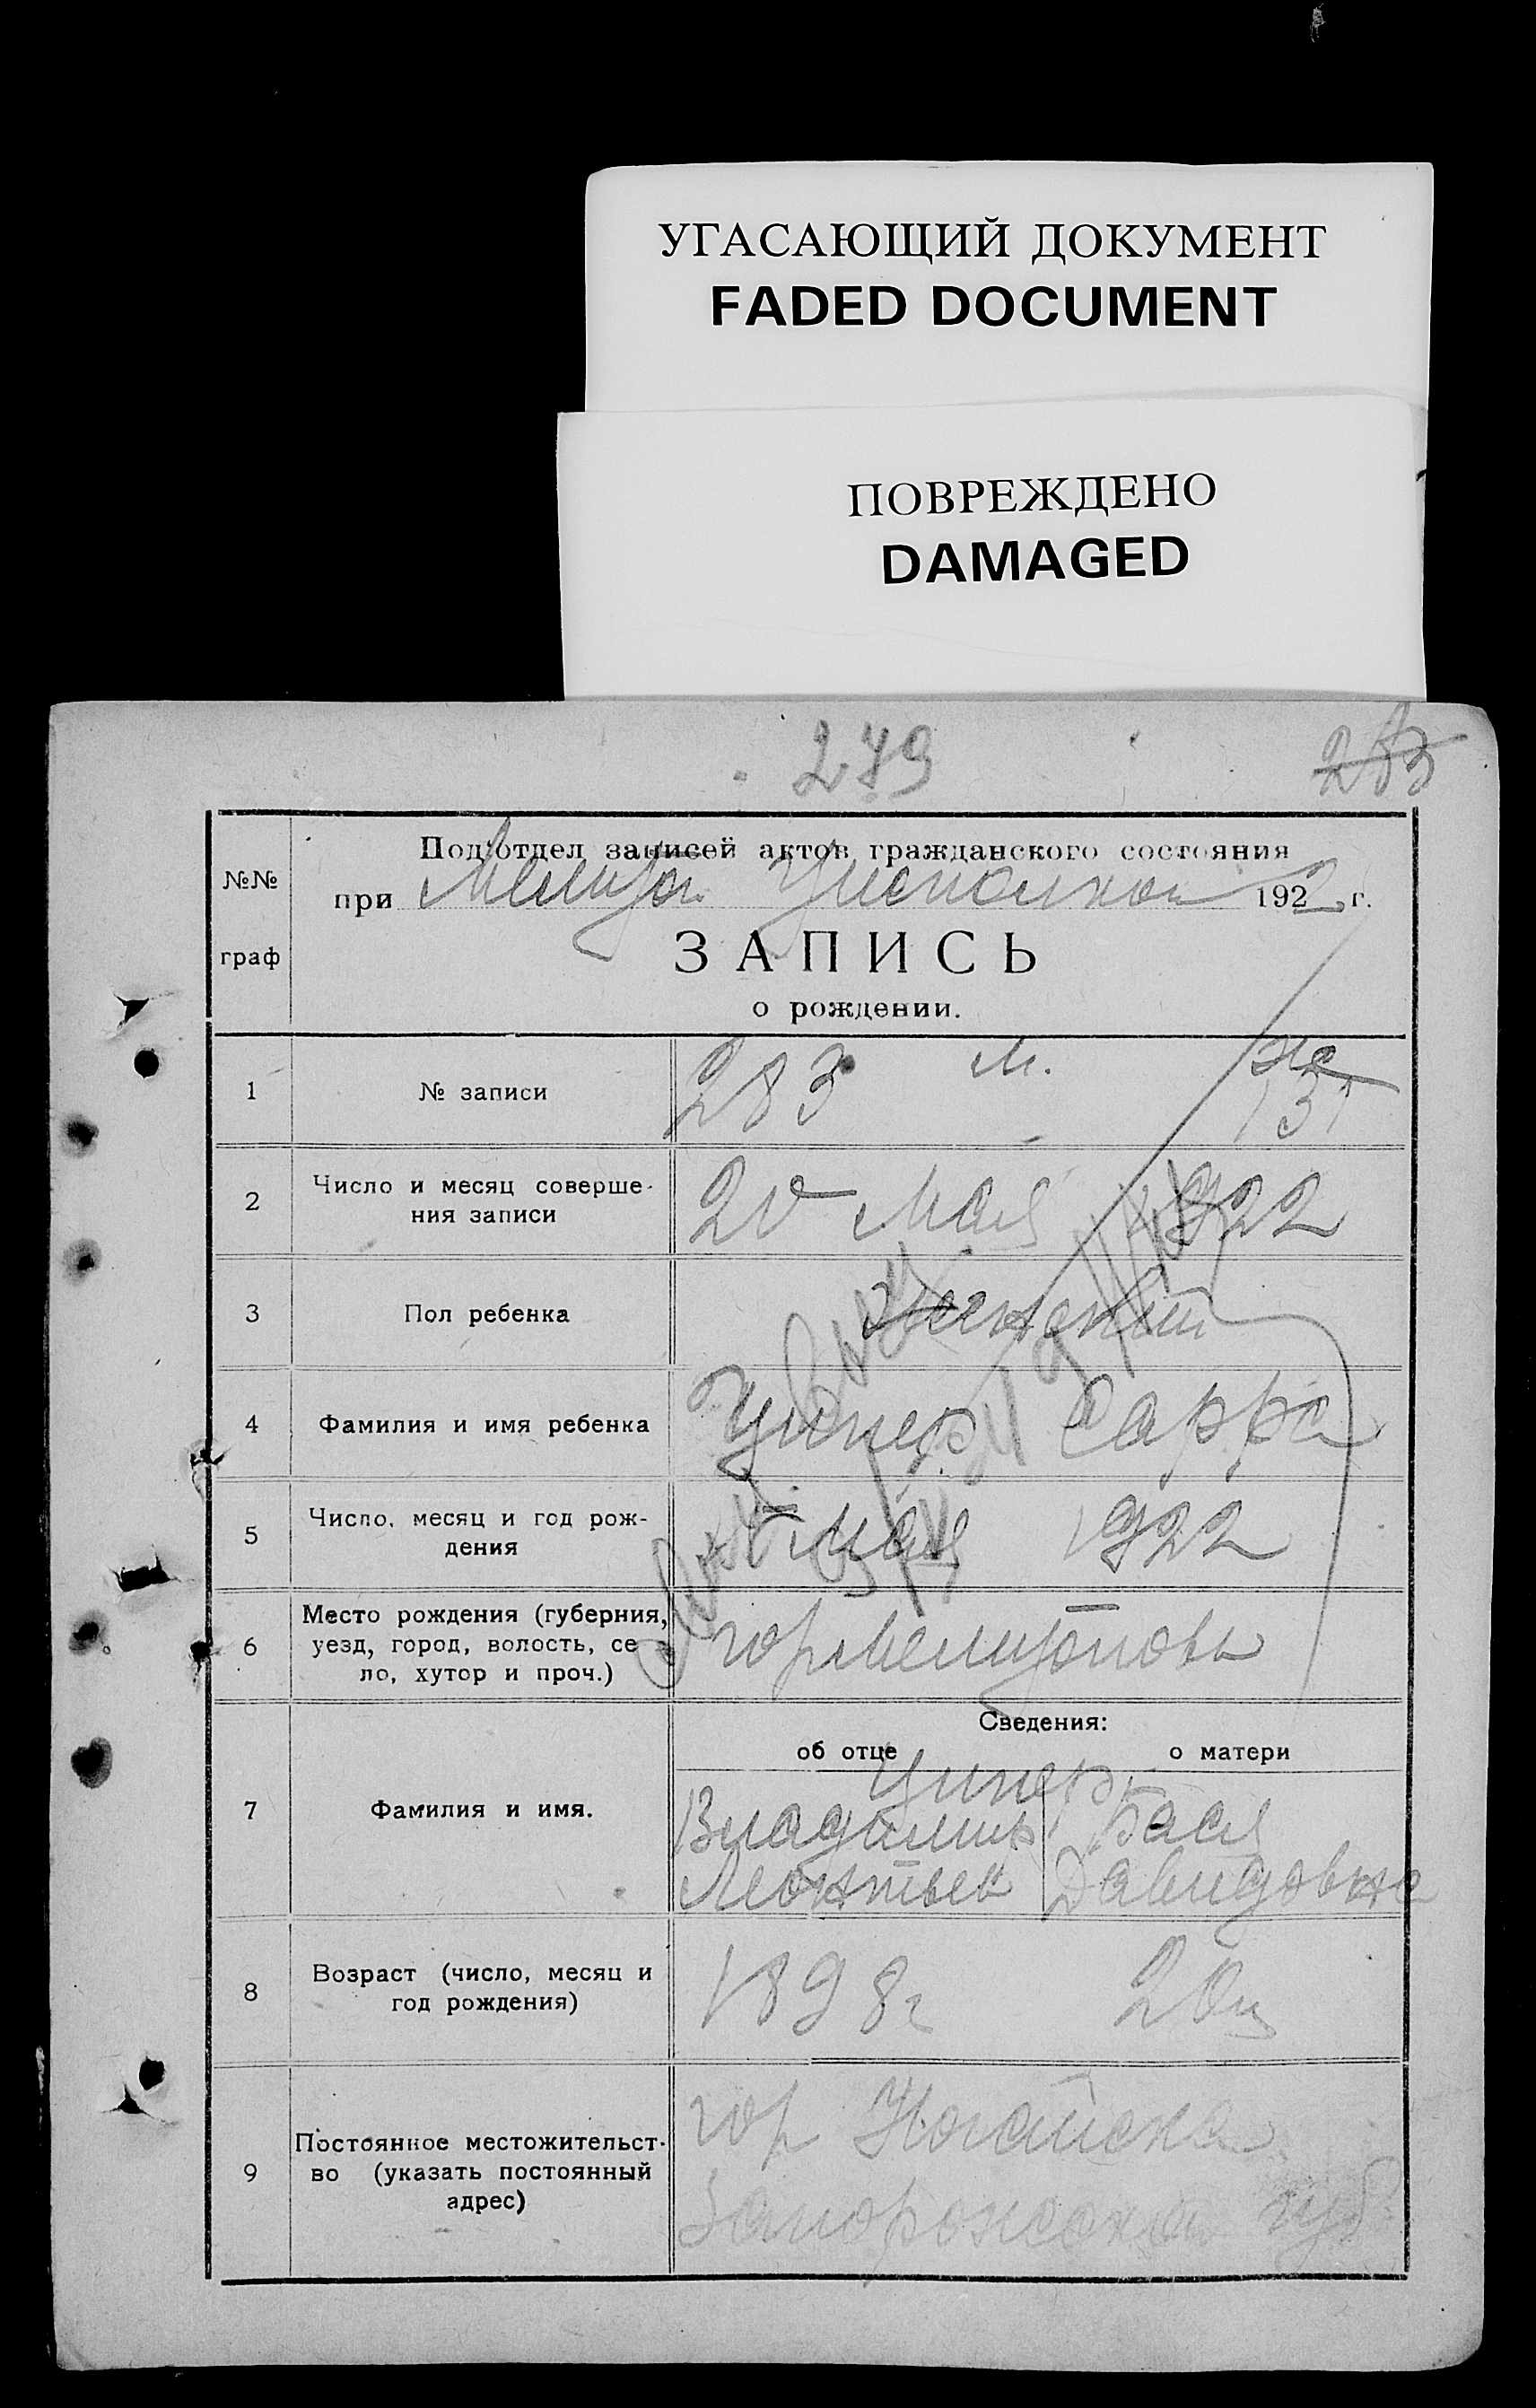 УГАСАЮЩИЙ ДОКУМЕНТ
FADED DOCUMENT
ПОВРЕЖДЕНО
DAMAGED
279
283
№№ граф
Под'отдел записей актов гражданского состояния
при 1922 г.
ЗАПИСЬ
о рождении.
1 № записи 283 м. же
131
2 Число и месяц соверше-
ния записи 20 мая 1922
3 Пол ребенка Женский
4 Фамилия и имя ребенка Ципер Сарра
5 Число, месяц и год рож-
дения мая 1922
6 Место рождения (губерния,
уезд, город, волость, се-
ло, хутор и проч.) гор Мелитополь
Сведения:
об отце о матери
7 Фамилия и имя. Ципер
Владимир Бася
Леонтьев Давидовна
8 Возраст (число, месяц и
год рождения) 1898 г 20 л
9 Постоянное местожительст-
во (указать постоянный
адрес) гор Ногайска
Запорожской губ